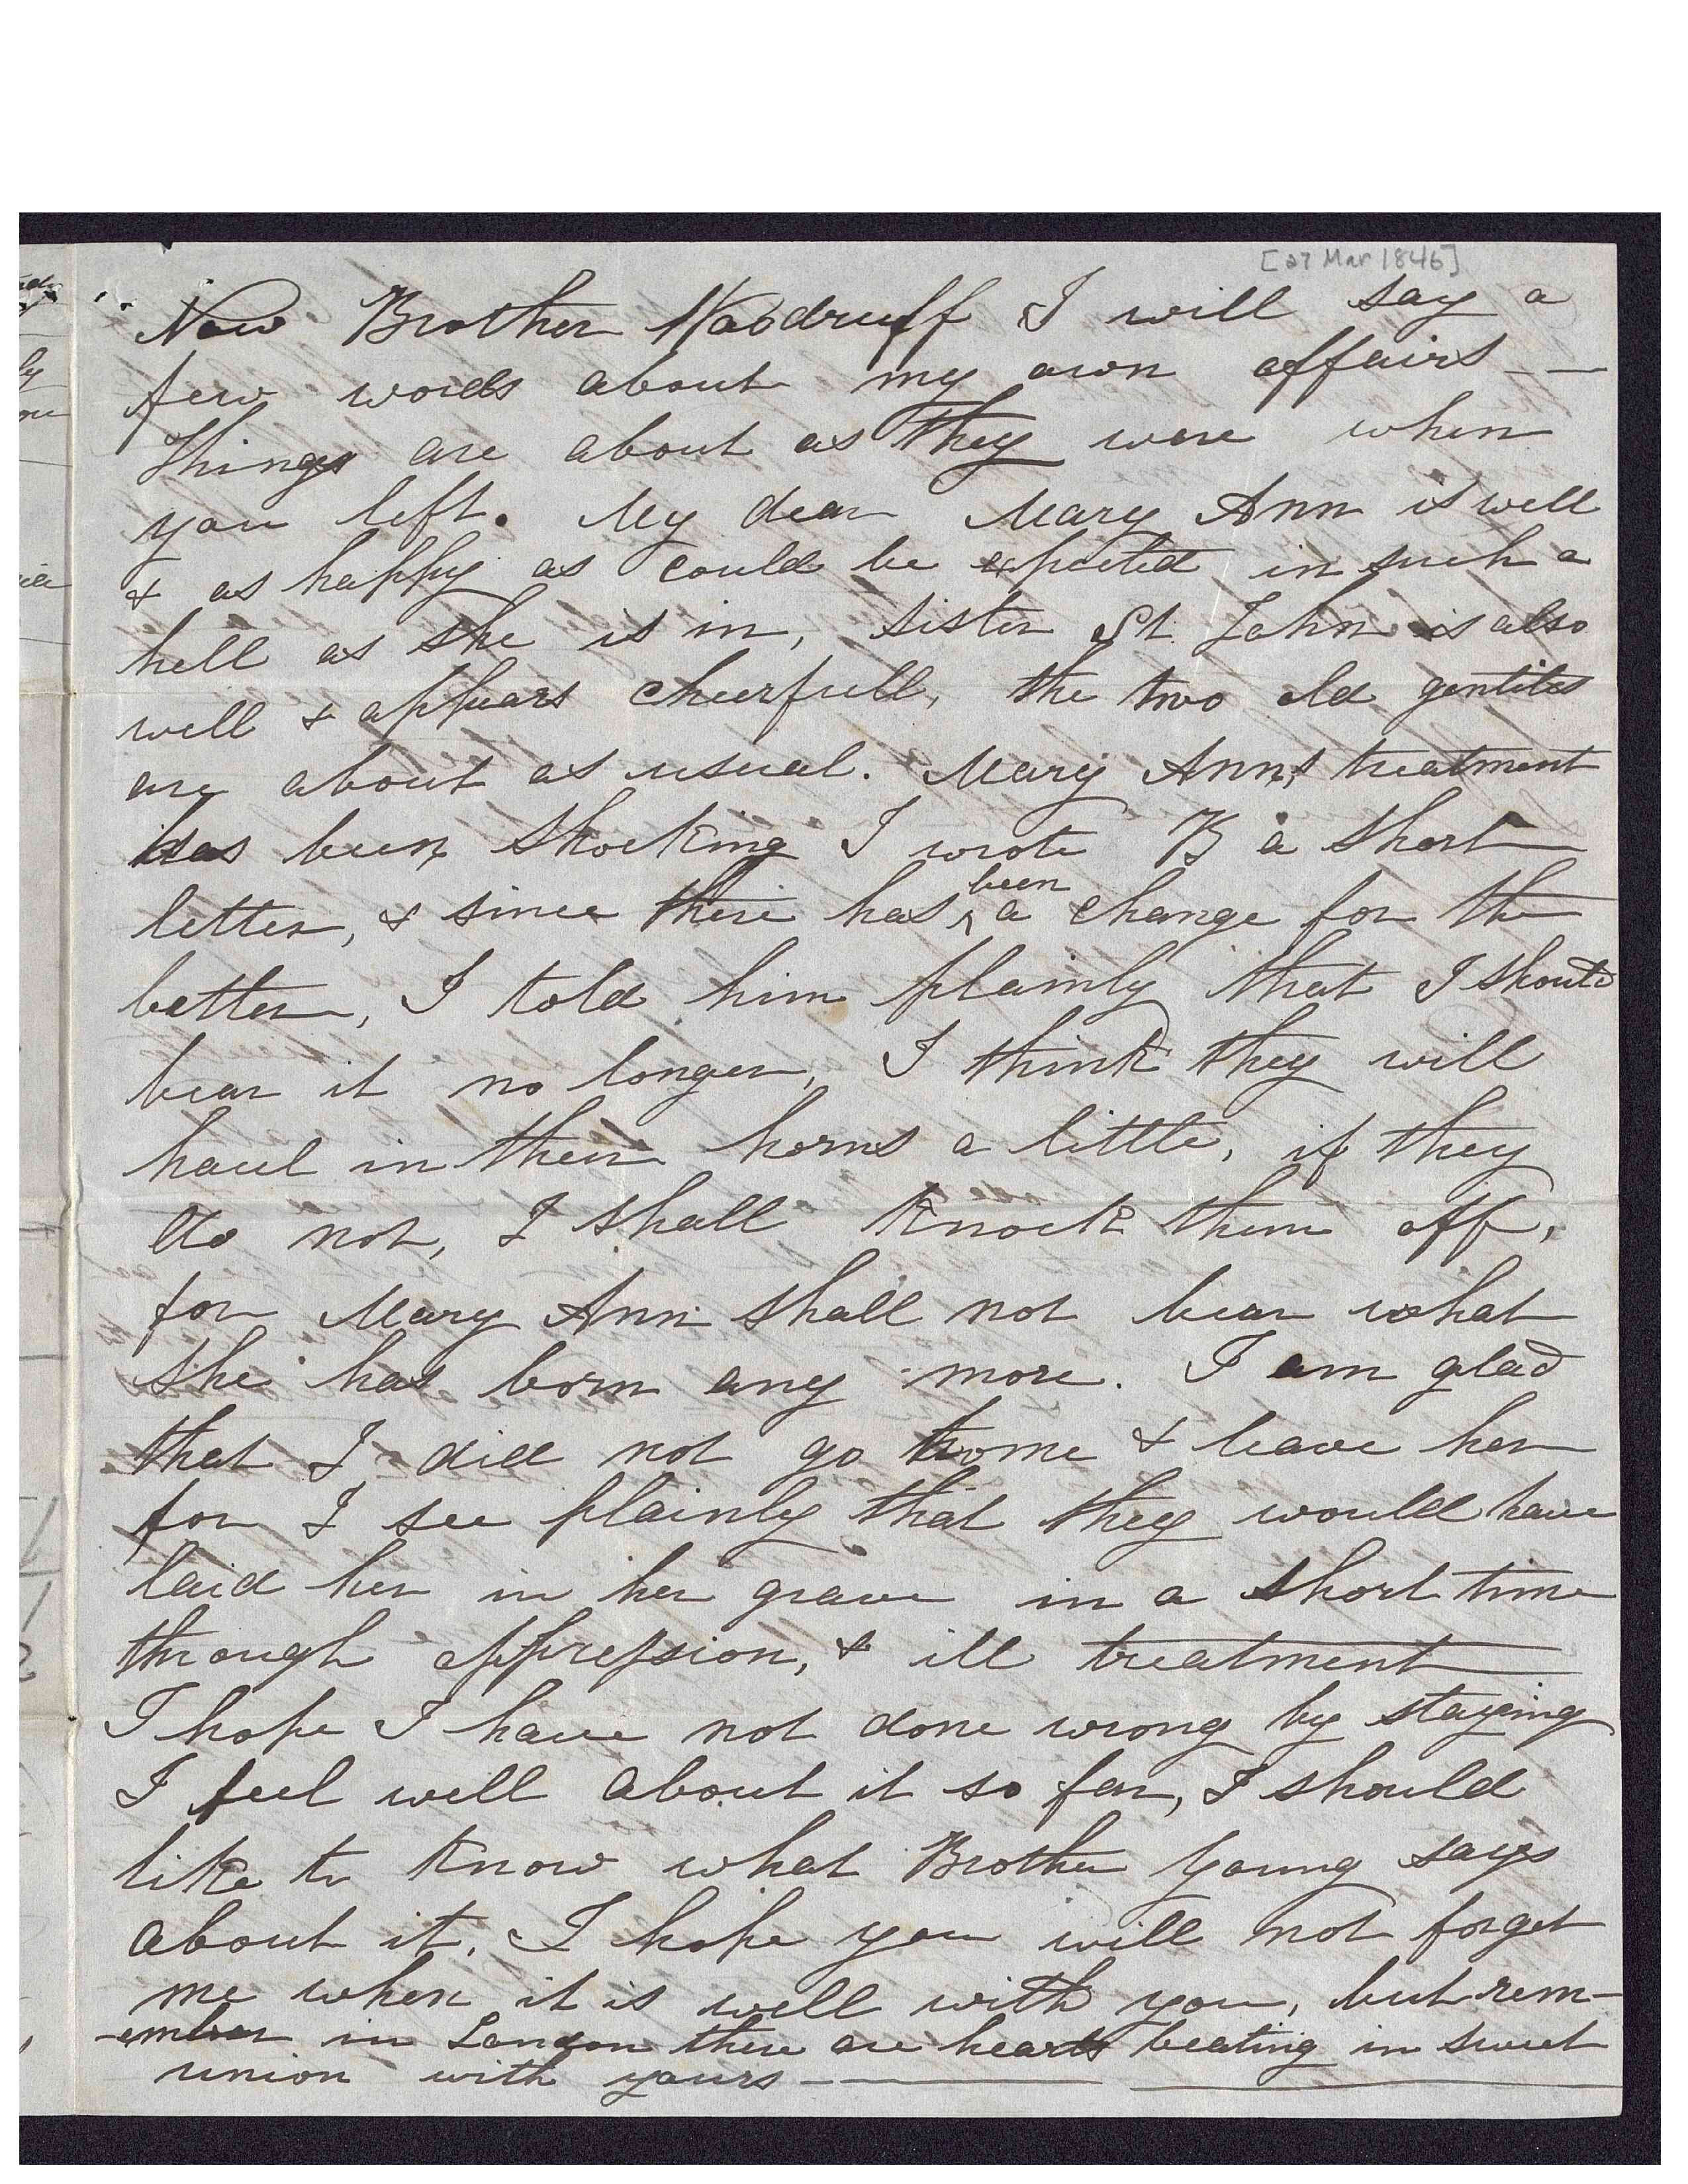 [27 Mar 1846]
Now Brother Woodruff I will say a
few words about my own affairs --
Things are about as they were when
you left. My dear Mary Ann is well
& as happy as could be expected in such a
hell as she is in, Sister St. John is also
well & appears cheerfull, the two old gentiles
are about as usual. Mary Anns treatment
has been shocking I wrote B a short
letter, & since there has been a change for the
better, I told him plainly that I should
bear it no longer, I think they will
haul in their horns a little, if they
do not, I shall knock them off,
for Mary Ann shall not bear what
she has born any more. I am glad
that I did not go home & leave her
for I see plainly that they would have
laid her in her grave in a short time
through oppression, & ill treatment
I hope I have not done wrong by staying
I feel well about it so far, I should
like to know what Brother Young says
about it. I hope you will not forget
me when it is well with you, but rem-
-ember in London there are hearts beating in sweet
union with yours —